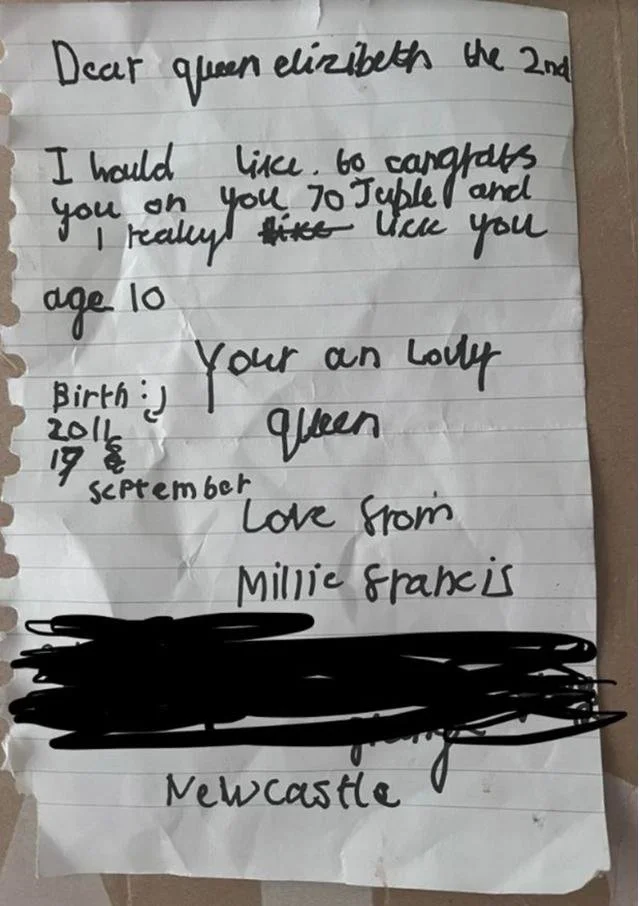 Dear queen elizibeth the 2nd
I would like. to cangrats
you on you 70 Juple and
I really like lick you
age 10
Your an Lovly
Birth :)
queen
2011
17
September
Love from
Millie francis
Newcastle